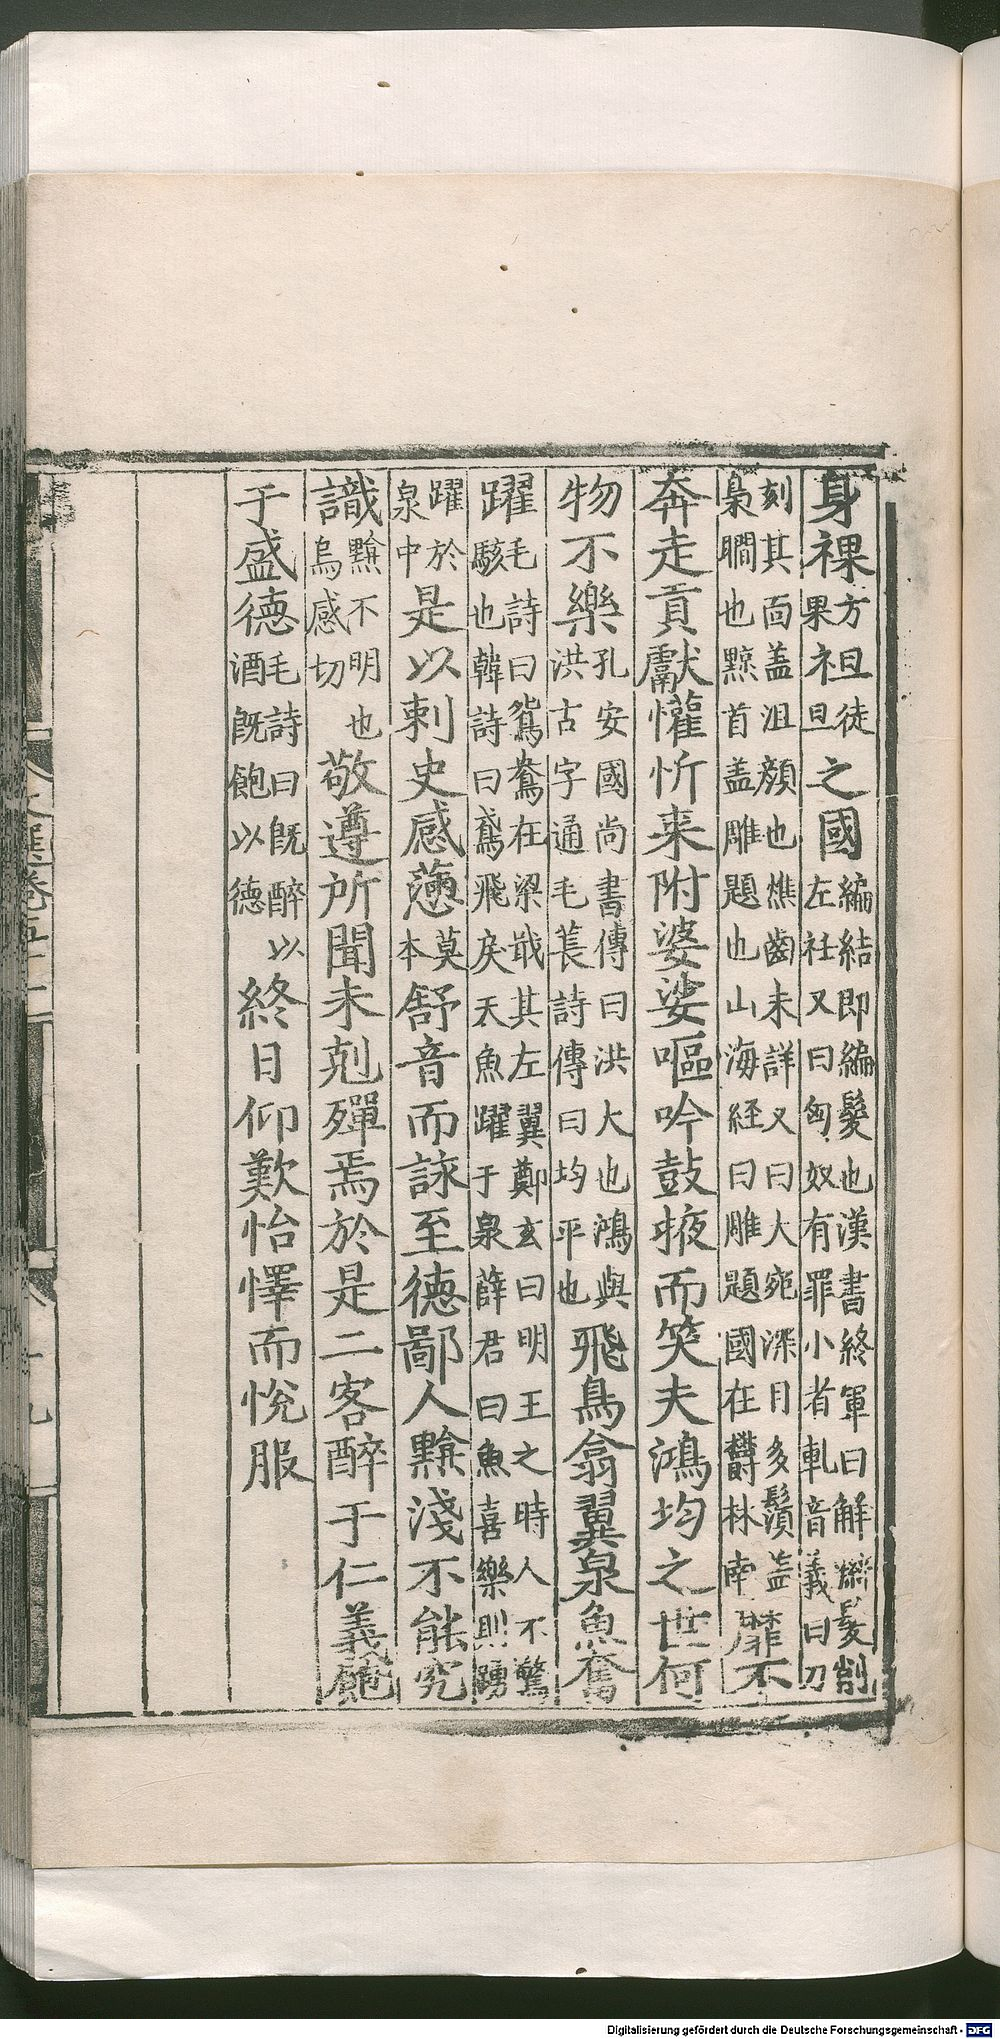 身裸方果袒徒旦之國編結即編髮也漢書終軍曰解編髮削左衽又曰匈奴有罪小者軋音義曰刃
刻其面盖沮顏也燋齒未詳又曰大宛深目多鬚盖梟瞷也黥首盖雕題也山海經曰雕題國在欝林南靡不
奔走貢獻懽忻来附婆娑嘔吟鼓掖而笑夫鴻均之世何
物不樂孔安國尚書傳曰洪大也鴻與洪古字通毛萇詩傳曰均平也飛鳥翕翼泉魚奮
躍毛詩曰鴛鴦在梁戢其左翼鄭玄曰明王之時人不驚駭也韓詩曰鳶飛戾天魚躍于泉薛君曰魚喜樂則踴
躍於泉中是以刺史感懣莫本舒音而詠至德鄙人黭淺不能究
識黭不明也烏感切敬遵所聞未剋殫焉於是二客醉于仁義飽
于盛德毛詩曰既醉以酒既飽以德終日仰歎怡懌而悅服
文選卷五十一
十九
Digitalisierung gefördert durch die Deutsche Forschungsgemeinschaft - DFG